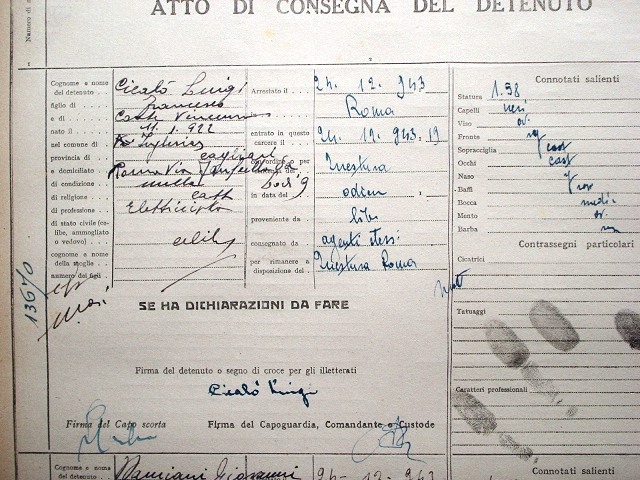 ATTO DI CONSEGNA DEL DETENUTO
Numero di
1
2
Cognome e nome
del detenuto Cicalò Luigi
figlio di Francesco
e di
nato il 11.1.922
nel comune di Iglesias
provincia di cagliari
e domiciliato Roma Via
di condizione nulla
di religione catt
di professione Elettricista
di stato civile (celibe, ammogliato o vedovo) celibe
cognome e nome
della moglie
numero dei figli
Arrestato il 24. 12. 943
Roma
entrato in questo
carcere il 24. 12. 943. 19
Questura
in data del odierna
proveniente da
consegnato da agenti stessi
per rimanere a
disposizione del Questura Roma
Connotati salienti
Statura 1.58
Capelli neri
Viso ov.
Fronte
Sopracciglia cast
Occhi cast
Naso
Baffi
Bocca media
Mento ov.
Barba
Contrassegni particolari
Cicatrici
Tatuaggi
Caratteri professionali
13670
SE HA DICHIARAZIONI DA FARE
Firma del detenuto o segno di croce per gli illetterati
Cicalò Luigi
Firma del Capo scorta
Firma del Capoguardia, Comandante o Custode
Cognome e nome
del detenuto Damiani Giovanni
24 - 12 - 943
Connotati salienti